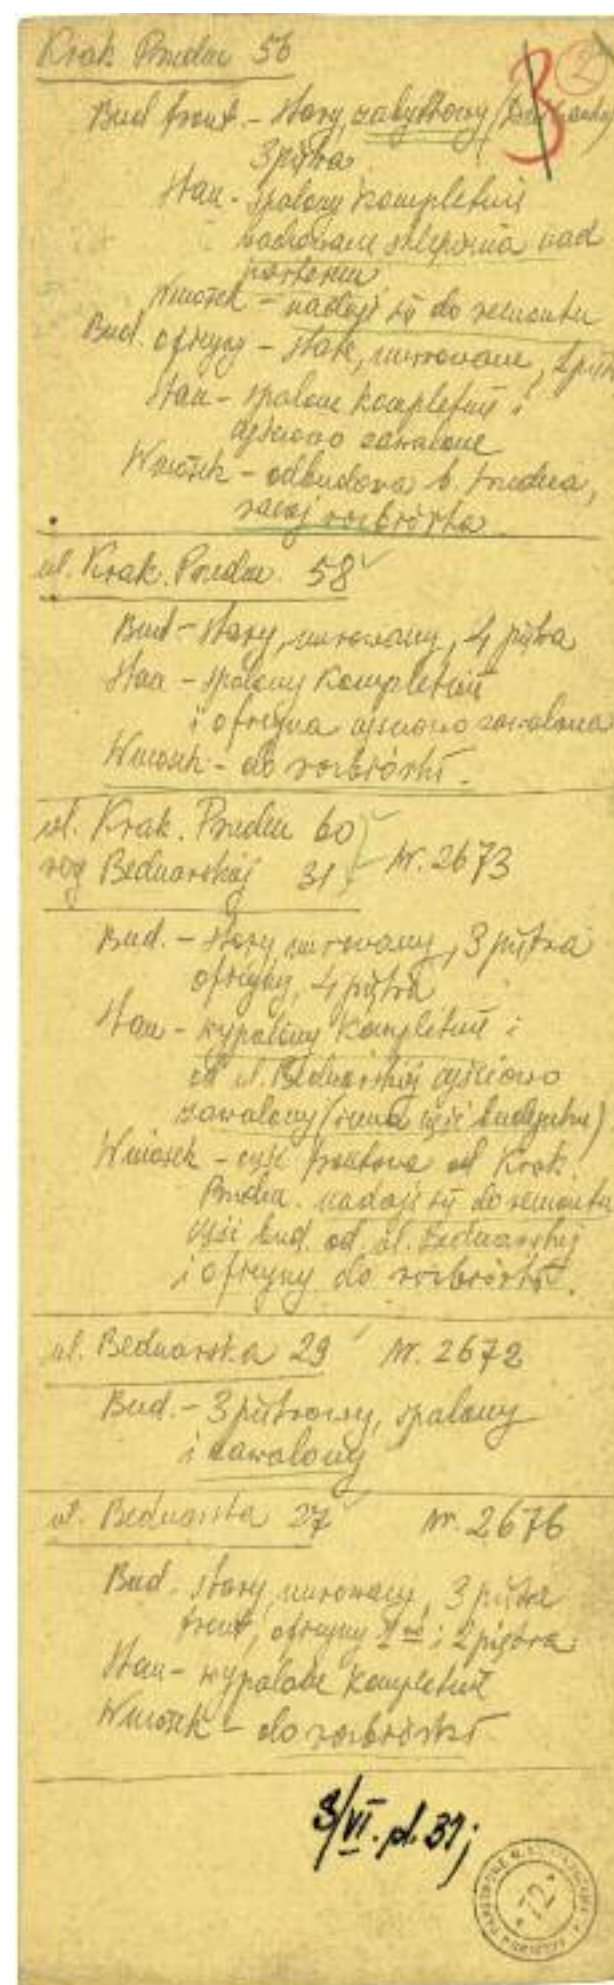 Krak Przedm 56
3 2
Bud front. - stary, zabytkowy
3 piętra
Stan - spalony kompletnie
zachowane sklepienia nad
parterem
Wniosek - nadaje się do remontu
Bud. oficyny - stare, murowane, 2 piętr
Stan - spalone kompletnie i
częściowo zawalone
Wniosek - odbudowa b. trudna,
raczej rozbiórka
ul. Krak. Przedm. 58
Bud - stary, murowany, 4 piętra
Stan - spalony kompletnie
i oficyna częściowo zawalona
Wniosek - do rozbiórki.
ul. Krak. Przedm 60
róg Bednarskiej 31 Nr. 2673
Bud. - stary, murowany, 3 piętra
oficyny, 4 piętra
Stan - wypalony kompletnie i
od ul. Bednarskiej częściowo
zawalony ( część budynku)
Wniosek - część frontowa od Krak.
Przedm. nadaje się do remontu
część bud. od ul. Bednarskiej
i oficyny do rozbiórki.
ul. Bednarska 29 Nr. 2672
Bud. - 3 piętrowy, spalony
i zawalony
ul. Bednarska 27 Nr. 2676
Bud. stary, murowany, 3 piętra
front, oficyny i 2 piętra
Stan - wypalone kompletnie
Wniosek - do rozbiórki
3/VI. pl. 31j
72